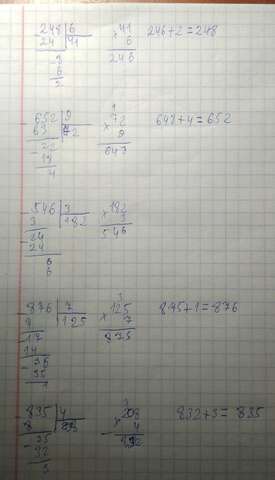 248 6 41 246+2=248
24 41 6
8 246
6
2
652 9 72 648+4=652
63 72 9
22 648
18
4
546 3 182
3 182 3
24 546
24
6
6
876 7 125 875+1=876
7 125 7
17 875
14
36
35
1
835 4 208 832+3=835
8 4
35 832
32
3